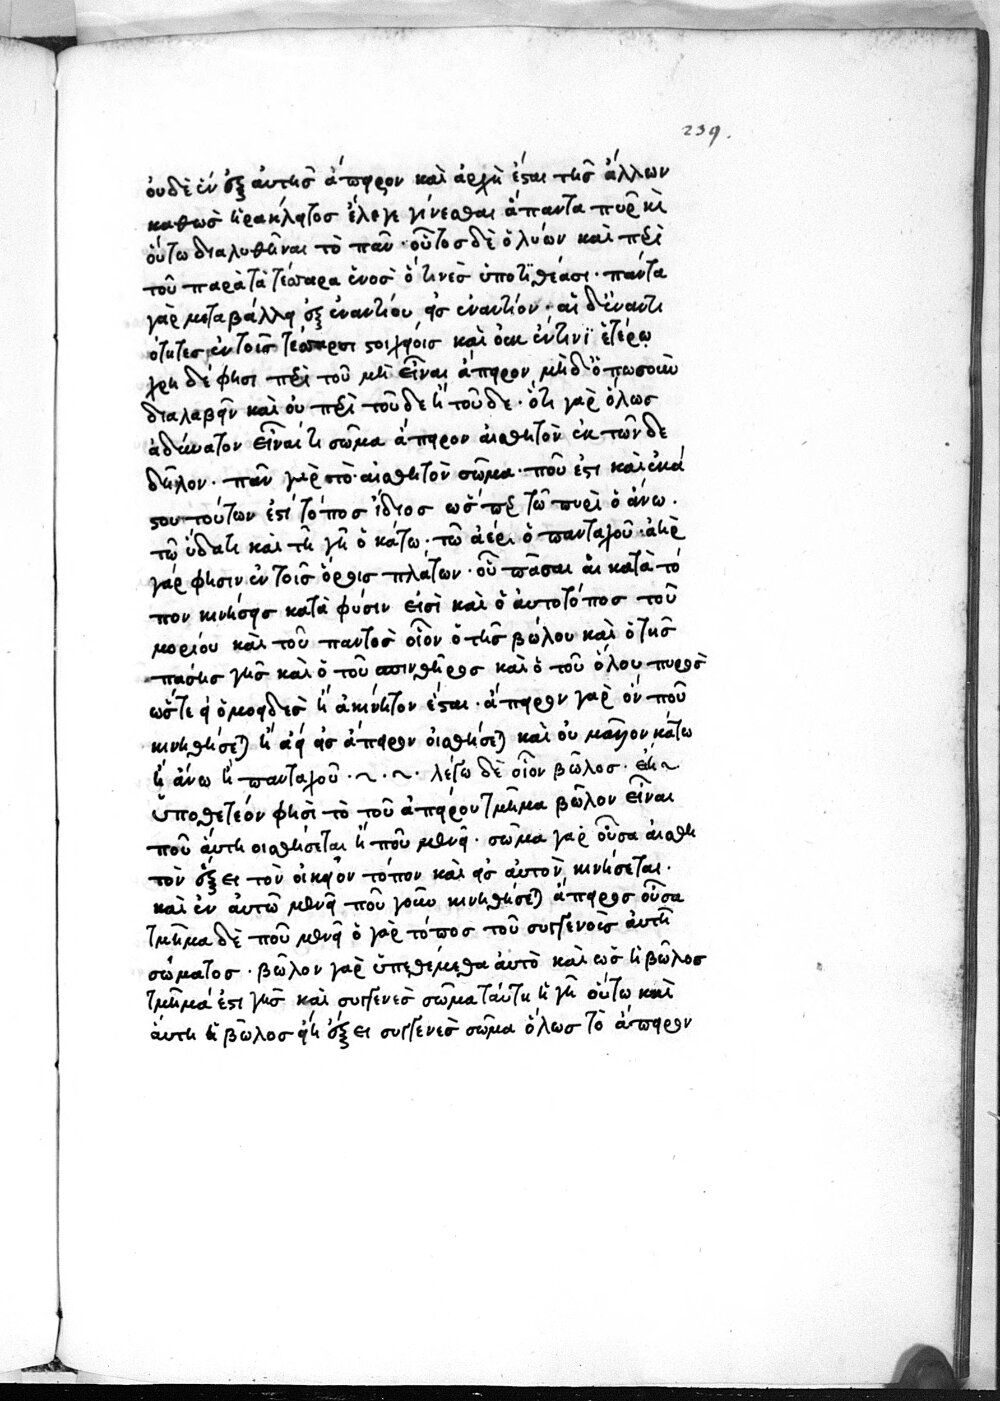 239.
οὐδὲ ἓν ἐξ αὐτῆς ἄπειρον καὶ ἀρχὴ ἔσται τῆς ἄλλων
καθὼς ἡράκλειτος ἔλεγε γίνεσθαι ἅπαντα πῦρ κὶ
οὕτω διαλυθῆναι τὸ πᾶν · οὗτος δὲ ὁ λύων καὶ περὶ
τοῦ παρὰ τὰ τέσσαρα ἑνὸς ὅ τινὲς ὑποτιθέασι · πάντα
γὰρ μεταβάλλει ἐξ ἐναντίου εἰς ἐναντίον · αἱ δ' ἐναντι
ότητες ἐν τοῖς τέσσαρσι στοιχείοις καὶ οὐκ ἔν τινι ἑτέρῳ
χρὴ δέ φησι περὶ τοῦ μὴ εἶναι ἄπειρον μὴ δ' ὁπωσοῦν
διαλαβεῖν καὶ οὐ περὶ τοῦδε ἢ τοῦδε · ὅτι γὰρ ὅλως
ἀδύνατον εἶναί τι σῶμα ἄπειρον αἰσθητὸν ἐκ τῶν δε
δῆλον · πᾶν γὰρ τὸ αἰσθητὸν σῶμα · ποῦ ἐστι καὶ ἑκά
στου τούτων ἐστὶ τόπος ἴδιος ὥσπερ τῶ πυρὶ ὁ ἄνω ·
τῶ ὕδατι καὶ τῆ γῆ ὁ κάτω · τῶ ἀέρι ὁ πανταχοῦ · ἀὴρ
γάρ φησιν ἐν τοῖς ὄρθις πλάτων · οὗ πᾶσαι αἱ κατὰ τό
πον κινήσεις κατὰ φύσιν εἰσὶ καὶ ὁ αὐτοτόπος τοῦ
μορίου καὶ τοῦ παντὸς οἷον ὁ τῆς βώλου καὶ ὁ τῆς
πάσης γῆς καὶ ὁ τοῦ σπινθῆρος καὶ ὁ τοῦ ὅλου πυρὸς
ὥστε εἰ ὁμοειδὲς ἢ ἀκίνητον ἔσται · ἄπειρον γὰρ ὂν ποῦ
κινηθήσεται ἢ ἀεὶ εἰς ἄπειρον οἰσθήσεται καὶ οὐ μᾶλλον κάτω
ἢ ἄνω ἢ πανταχοῦ · ~ · ~ · λέγω δὲ οἷον βῶλος ·
ὑποθετέον φησὶ τὸ τοῦ ἀπείρου τμῆμα βῶλον εἶναι
ποῦ αὕτη οἰσθήσεται ἢ ποῦ μενεῖ · σῶμα γὰρ οὖσα αἰσθη
τὸν ἕξει τὸν οἰκεῖον τόπον καὶ εἰς αὐτὸν κινήσεται ·
καὶ ἐν αὐτῶ μενεῖ ποῦ γοῦν κινηθήσεται ἄπειρος οὖσα
τμῆμα δὲ ποῦ μενεῖ ὁ γὰρ τόπος τοῦ συγγενοῦς αὐτῆ
σώματος · βῶλον γὰρ ὑπεθέμεθα αὐτὸ καὶ ὡς ἡ βῶλος
τμῆμά ἐστι γῆς καὶ συγγενὲς σῶμα ταύτη ἡ γῆ οὕτω καὶ
αὕτη ἡ βῶλος ἕξει συγγενὲς σῶμα ὅλως τὸ ἄπειρον